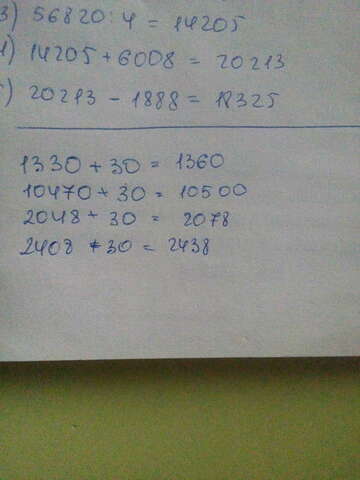 3) 56820:4 = 14205
4) 14205 + 6008 = 20213
) 20213 - 1888 = 18325
1330 + 30 = 1360
10470 + 30 = 10500
2048 + 30 = 2078
2408 + 30 = 2438